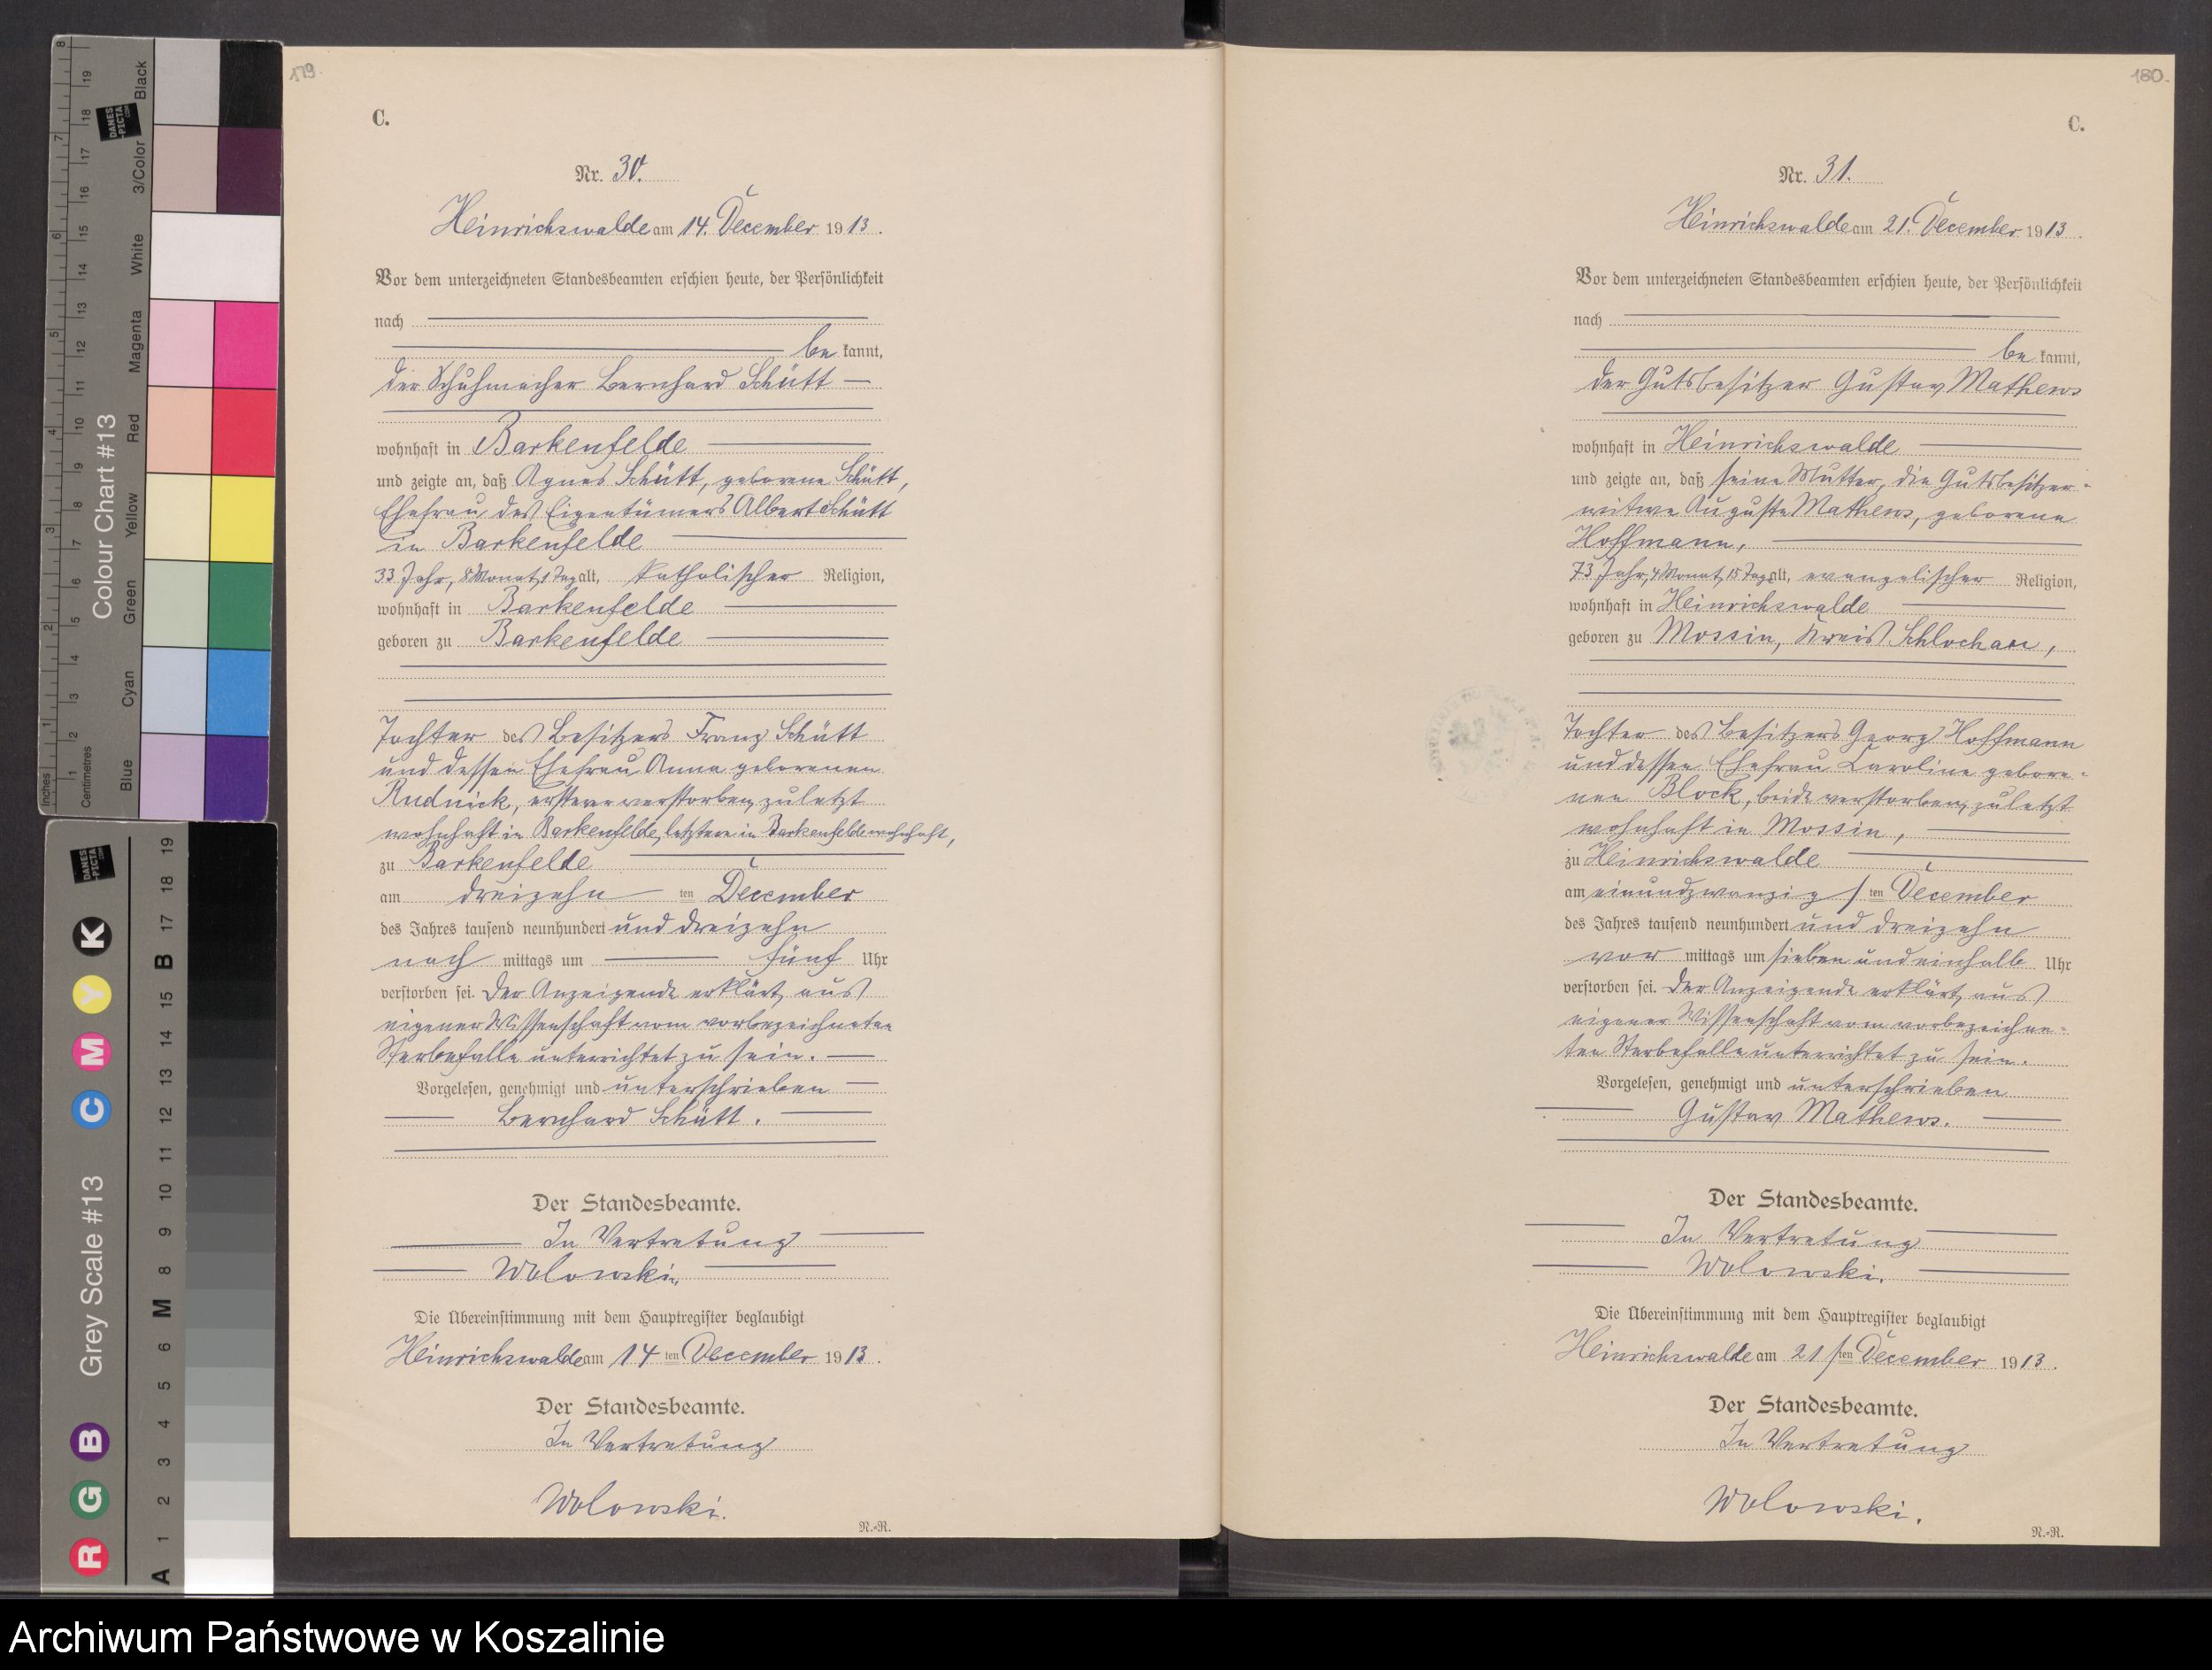 179.
C.
Nr. 30.
Heinrichswalde am 14. December 1913.
Vor dem unterzeichneten Standesbeamten erschien heute, der Persönlichkeit
nach
be kannt,
der Schuhmacher Bernhard Schütt
wohnhaft in Barkenfelde
und zeigte an, daß Agnes Schütt, geborene Schütt,
Ehefrau des Eigentümers Albert Schütt
in Barkenfelde
33 Jahr, 8 Monat, 1 Tag alt, katholischer Religion,
wohnhaft in Barkenfelde
geboren zu Barkenfelde
Tochter des Besitzers Franz Schütt
und dessen Ehefrau Anna geborenen
Rudnick, ersterer verstorben, zuletzt
wohnhaft in Barkenfelde, letztere in Barkenfelde wohnhaft,
zu Barkenfelde
am dreizehn ten December
des Jahres tausend neunhundert und dreizehn
nach mittags um fünf Uhr
verstorben sei. Der Anzeigende erklärt, aus
eigener Wissenschaft vom vorbezeichneten
Sterbefalle unterrichtet zu sein.
Vorgelesen, genehmigt und unterschrieben
Bernhard Schütt.
Der Standesbeamte.
In Vertretung
Wolowski.
Die Übereinstimmung mit dem Hauptregister beglaubigt
Heinrichswalde am 14 ten December 1913.
Der Standesbeamte.
In Vertretung
Wolowski.
N.-R.
180.
C.
Nr. 31.
Heinrichswalde am 21. December 1913.
Vor dem unterzeichneten Standesbeamten erschien heute, der Persönlichkeit
nach
be kannt,
der Gutsbesitzer Gustav Mathews
wohnhaft in Heinrichswalde
und zeigte an, daß seine Mutter, die Gutsbesitzer-
witwe Auguste Mathews, geborene
Hoffmann,
73 Jahr, 4 Monat, 15 Tag alt, evangelischer Religion,
wohnhaft in Heinrichswalde
geboren zu Mossin, Kreis Schlochau,
Tochter des Besitzers Georg Hoffmann
und dessen Ehefrau Caroline gebore-
nen Block, beide verstorben, zuletzt
wohnhaft in Mossin,
zu Heinrichswalde
am einundzwanzig sten December
des Jahres tausend neunhundert und dreizehn
vor mittags um sieben und einhalb Uhr
verstorben sei. Der Anzeigende erklärt, aus
eigener Wissenschaft vom vorbezeichne-
ten Sterbefalle unterrichtet zu sein.
Vorgelesen, genehmigt und unterschrieben
Gustav Mathews.
Der Standesbeamte.
In Vertretung
Wolowski.
Die Übereinstimmung mit dem Hauptregister beglaubigt
Heinrichswalde am 21 sten December 1913.
Der Standesbeamte.
In Vertretung
Wolowski.
N.-R.
Colour Chart #13
Blue Cyan Green Yellow Red Magenta White 3/Color Black
Inches 1 2 3 4 5 6 7 8
Centimetres 1 2 3 4 5 6 7 8 9 10 11 12 13 14 15 16 17 18 19
DANES-PICTA.COM
Grey Scale #13
R G B C M Y K
A 1 2 3 4 5 6 M 8 9 10 11 12 13 14 15 B 17 18 19
DANES-PICTA.COM
Archiwum Państwowe w Koszalinie